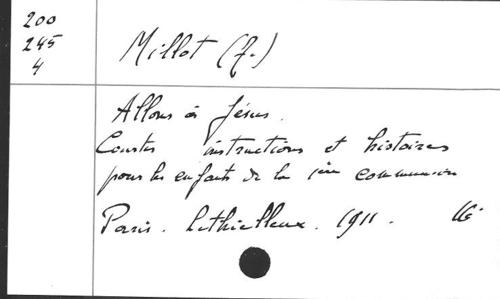 200
245
4
Millot (J.)
Allons à Jésus.
Courtes instructions et histoires
pour les enfants de la 1ère communion
Paris. Lethielleux. 1911.